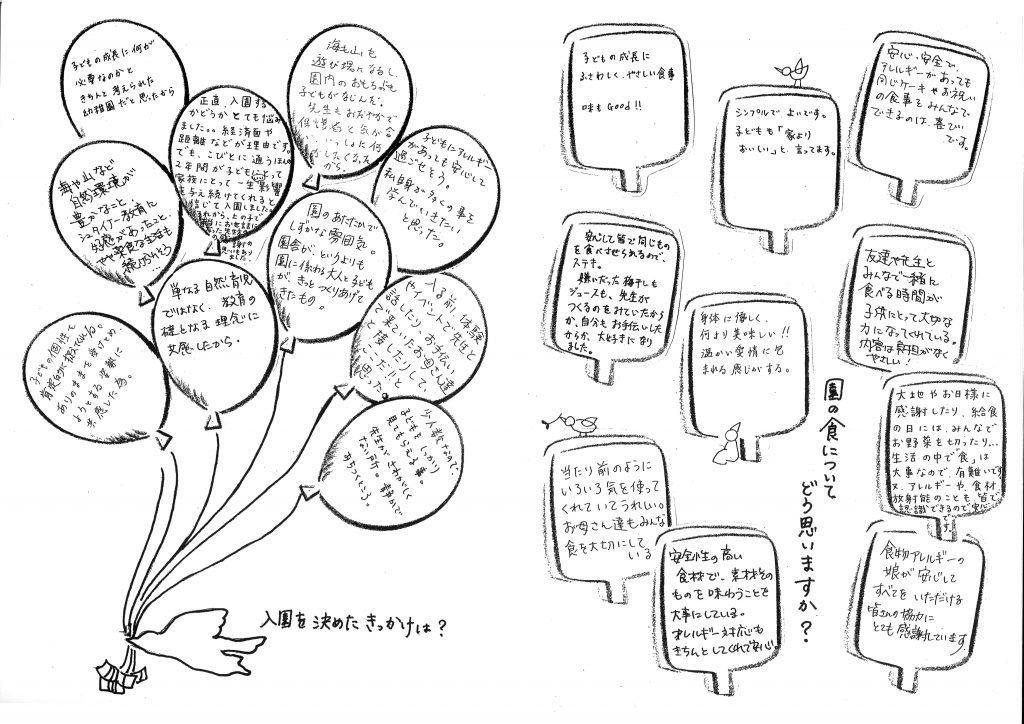 子どもの成長に何が
必要なのかと
きちんと考えられた
幼稚園だと思ったから
海も山も
遊び場になるし、
園内のおもちゃも
子どもがなじんだ。
先生もおだやかで
保護者と気が合い
から。
正直、入園する
かどうかとても悩み
ました。。経済面や
距離などが理由です。
でも、こびとに通うほんの
2年間が子どもにとって
家族にとって一生影響
を与え続けてくれると
信じて入園しました。
子どもにアレルギー
があっても安心して
過ごせそう。
私自身が多くの事を
学んでいきたい
と思った。
海や山など
自然環境が
豊かなこと、
シュタイナー教育に
共感があったこと、
やや素朴な生活も
積めそう
園のあたたかで
しずかな雰囲気。
園舎が、というよりも
園に係わる大人と子ども
が、きっとつくりあげて
きたもの。
単なる自然育児
ではなく、教育の
礎となる理念に
共感したから。
入る前、体験
やイベントで先生と
話したり、お手伝い
で来ていたお母さん達
と接したりして、
"ここだ!"と
思った。
子どもの個性を
肯定的に捉えてくれる。
ありのままを愛そうとする
姿勢に
共感した為。
少人数なので、
子どもをしっかり
見てもらえる事。
先生が、さわがしく
ない所。静かで
おちついたところ。
入園を決めたきっかけは?
子どもの成長に
ふさわしく、やさしい食事
味もGood!!
シンプルでよいです。
子どもも「家より
おいしい」と、言ってます。
安心・安全で、
アレルギーがあっても
同じケーキやお祝い
の食事をみんなで
できるのは、喜び
です。
安心して皆で同じもの
を食べさせられるので、
ステキ。
嫌いだった梅干しも
ジュースも、先生が
つくるのをみていたから
か、自分もお手伝いした
からか、大好きになり
ました。
身体に優しく、
何より美味しい!!
温かい愛情に包
まれる感じがする。
友達や先生と
みんなで一緒に
食べる時間が
子供にとって大切な
力になってくれている。
内容は申し分がなく
やさしい!
園の食について
どう思いますか?
大地やお日様に
感謝したり、給食
の日には、みんなで
お野菜を切ったり…
生活の中で「食」は
大事なので、有難いです
又、アレルギーや、食材、
放射能のことも、皆で
認識できるので安心
です。
当たり前のように
いろいろ気を使って
くれていてうれしい。
お母さん達もみんな
食を大切にして
いる
安全性の高い
食材で、素材その
ものを味わうことを
大事にしている。
アレルギー対応も
きちんとしてくれて安心
食物アレルギーの
娘が安心して
すべてをいただける
皆さんの協力に
とても感謝しています